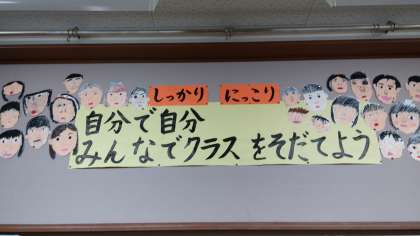 しっかり にっこり
自分で自分
みんなでクラスをそだてよう